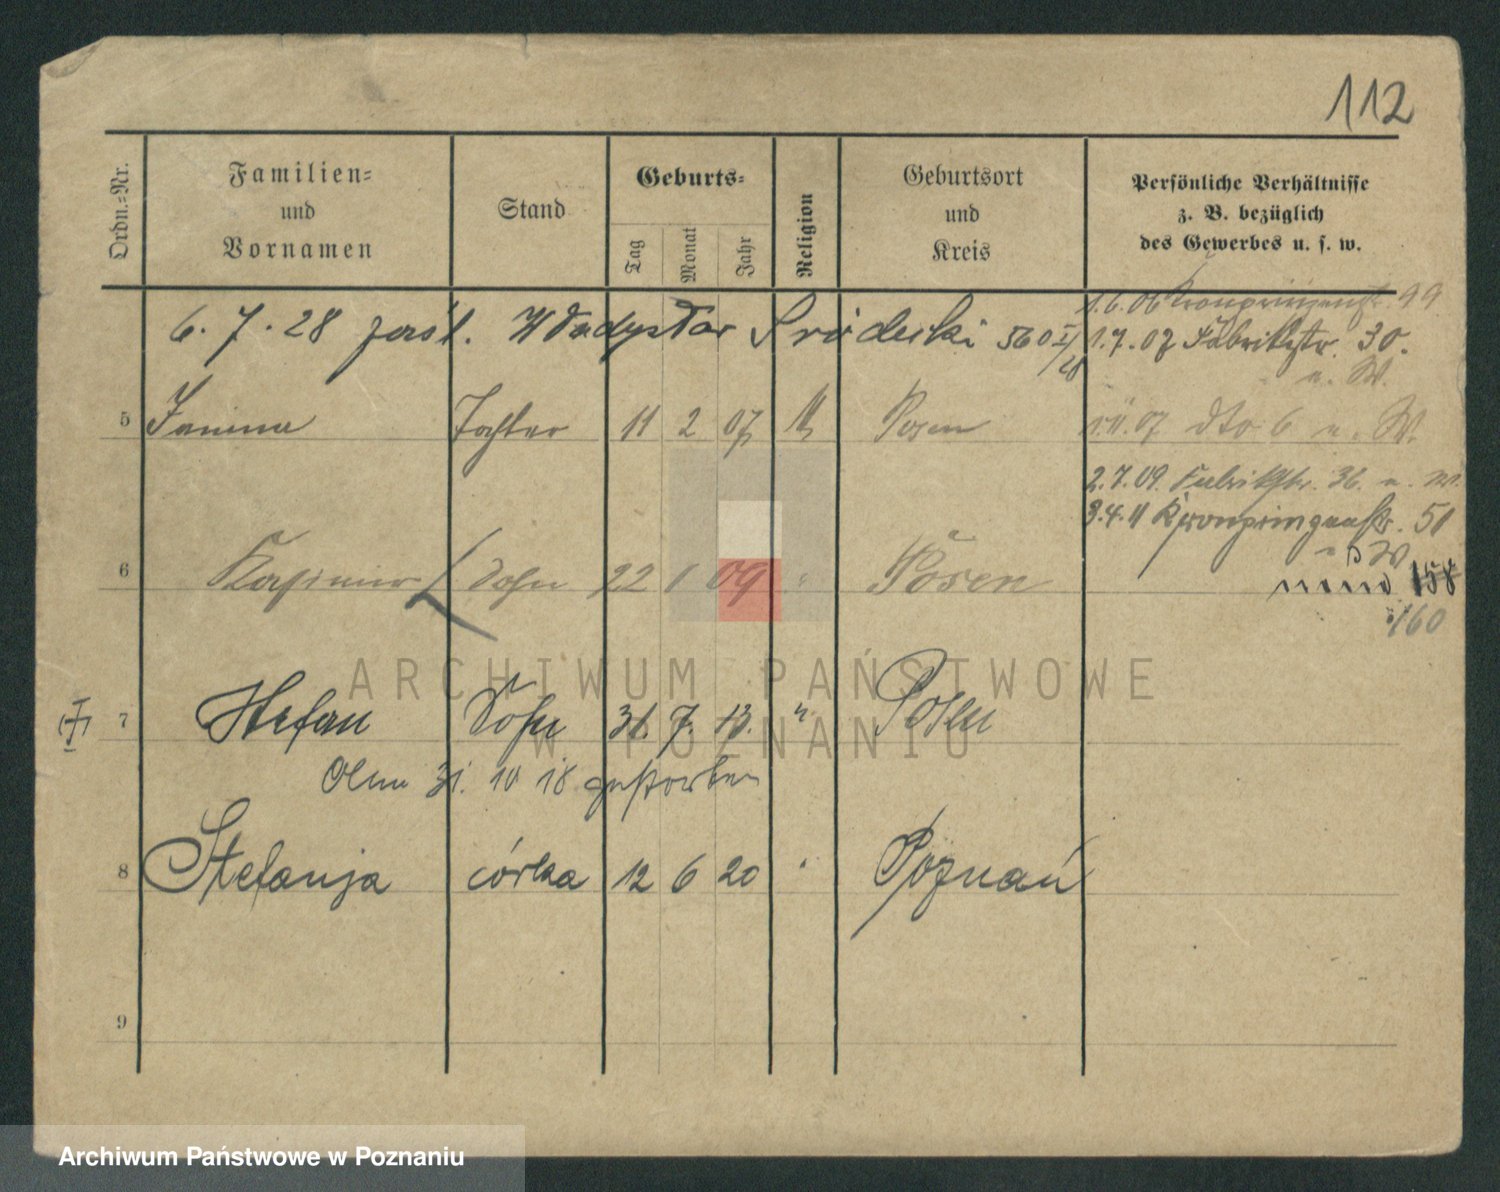 112
Ordn.=Nr.
Familien=
und
Vornamen
Stand
Geburts=
Tag
Monat
Jahr
Religion
Geburtsort
und
Kreis
Persönliche Verhältnisse
z. B. bezüglich
des Gewerbes u. s. w.
1.6.06 Kronprinzenstr. 99
6. 7. 28 zaśl. Władysław Środecki 560 I/28
1.7.07 Fabrikstr. 30.
u. W.
5 Janina Tochter 11 2 07 Posen
07 dto 6 u. W.
2.7.09. Fabrikstr. 36. u. W.
3.4.11 Kronprinzenstr. 51
W
6 Kasimir Sohn 22 1 09 " Posen
158
160
7 Stefan Sohn 31. 7. 13. " Posen
31. 10 18 gestorben
8 Stefanja córka 12 6 20 " Poznań
9
ARCHIWUM PAŃSTWOWE
W POZNANIU
Archiwum Państwowe w Poznaniu